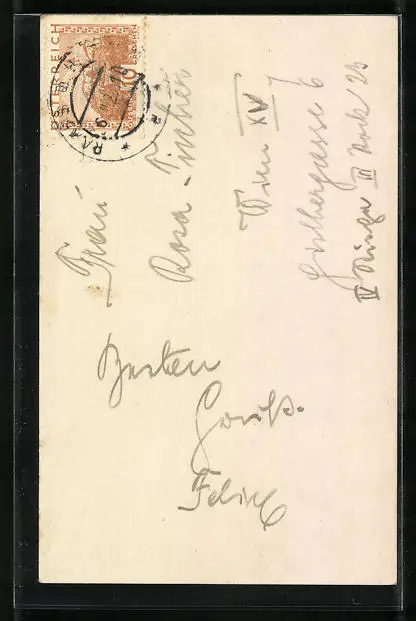 ÖSTERREICH
10
GROSCHEN
Frau
Rosa Fischer
Wien XV
Goldhergasse 6
IV Stiege III Stock 23
Besten
Gruß.
Felix